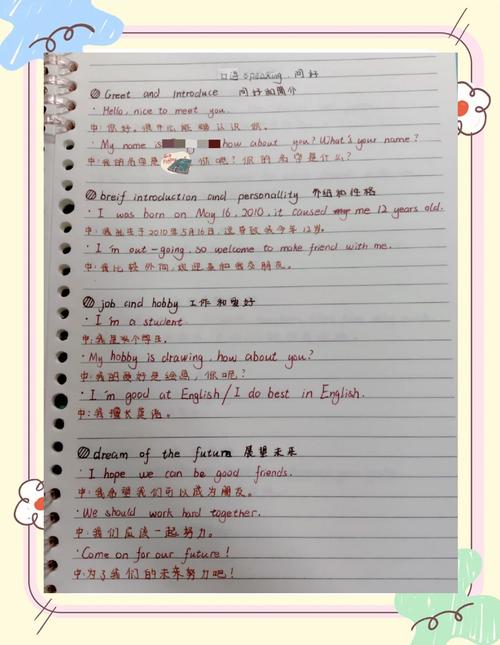 口语 speaking. 问好
Greet and introduce 问好和简介
· Hello, nice to meet you.
中:你好。很开心能够认识你。
· My name is how about you? What's your name?
中:我的名字是 你呢?你的名字是什么?
breif introduction and personallity 介绍和性格
· I was born on May 16, 2010, it caused me 12 years old.
中:我出生于2010年5月16日,这导致我今年12岁。
· I'm out-going, so welcome to make friend with me.
中:我比较外向,欢迎来和我交朋友。
job and hobby 工作和爱好
· I'm a student.
中:我是一个学生。
· My hobby is drawing, how about you?
中:我的爱好是绘画,你呢?
· I'm good at English/I do best in English.
中:我擅长英语。
dream of the future 展望未来
· I hope we can be good friends.
中:我希望我们可以成为朋友。
· We should work hard together.
中:我们应该一起努力。
· Come on for our future!
中:为了我们的未来努力吧!